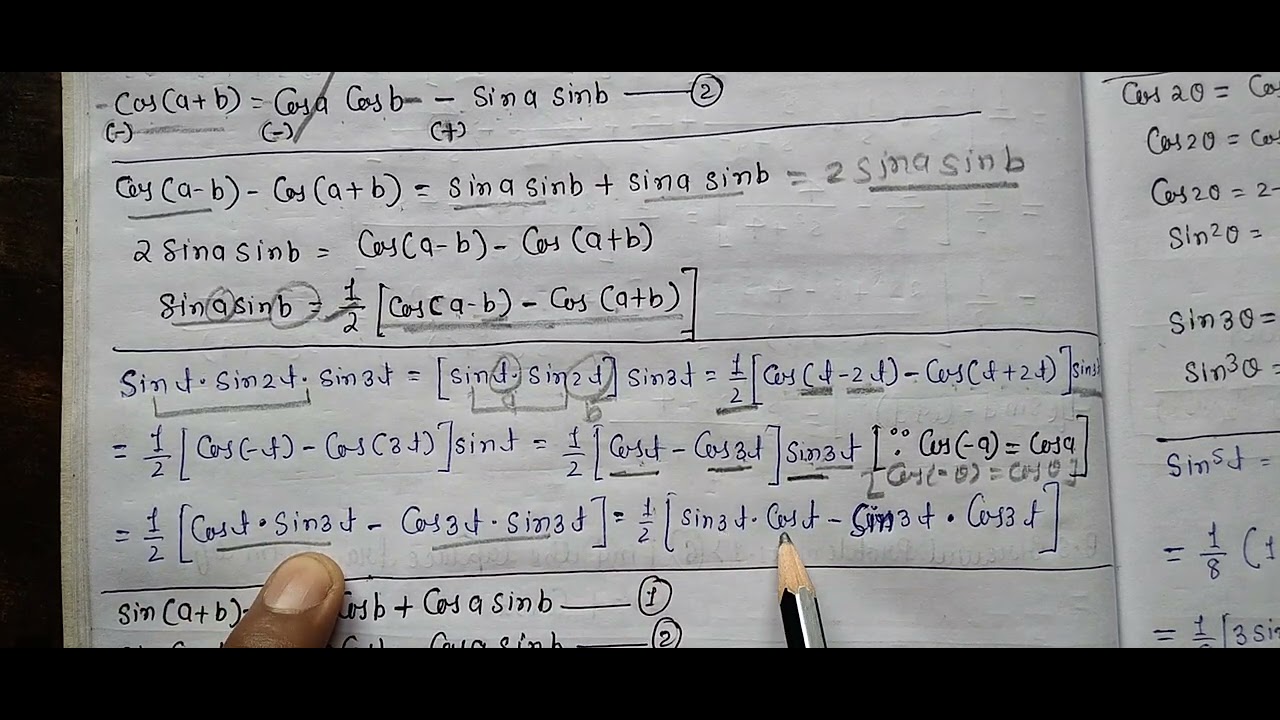 Cos(a+b) = Cosa Cosb - Sina Sinb ②
(-) (-) (+)
Cos(a-b) - Cos(a+b) = Sina Sinb + Sina Sinb = 2 Sina Sinb
2 Sina Sinb = Cos(a-b) - Cos(a+b)
Sina Sinb = 1/2 [Cos(a-b) - Cos(a+b)]
Sint · Sin2t · Sin3t = [Sint · Sin2t] Sin3t = 1/2 [Cos(t-2t) - Cos(t+2t)] Sin3t
a b
= 1/2 [Cos(-t) - Cos(3t)] Sint = 1/2 [Cost - Cos3t] Sin3t [∵ Cos(-a) = Cosa]
[Cos(-θ) = Cosθ]
= 1/2 [Cost · Sin3t - Cos3t · Sin3t] = 1/2 [Sin3t · Cost - Sin3t · Cos3t]
Sin(a+b) Cosb + Cosa Sinb ①
Cosa Sinb ②
Cos2θ = Cos
Cos2θ = Cos
Cos2θ = 2-
Sin²θ =
Sin3θ =
Sin³θ =
Sin⁵t =
= 1/8 (1
[3 Sin